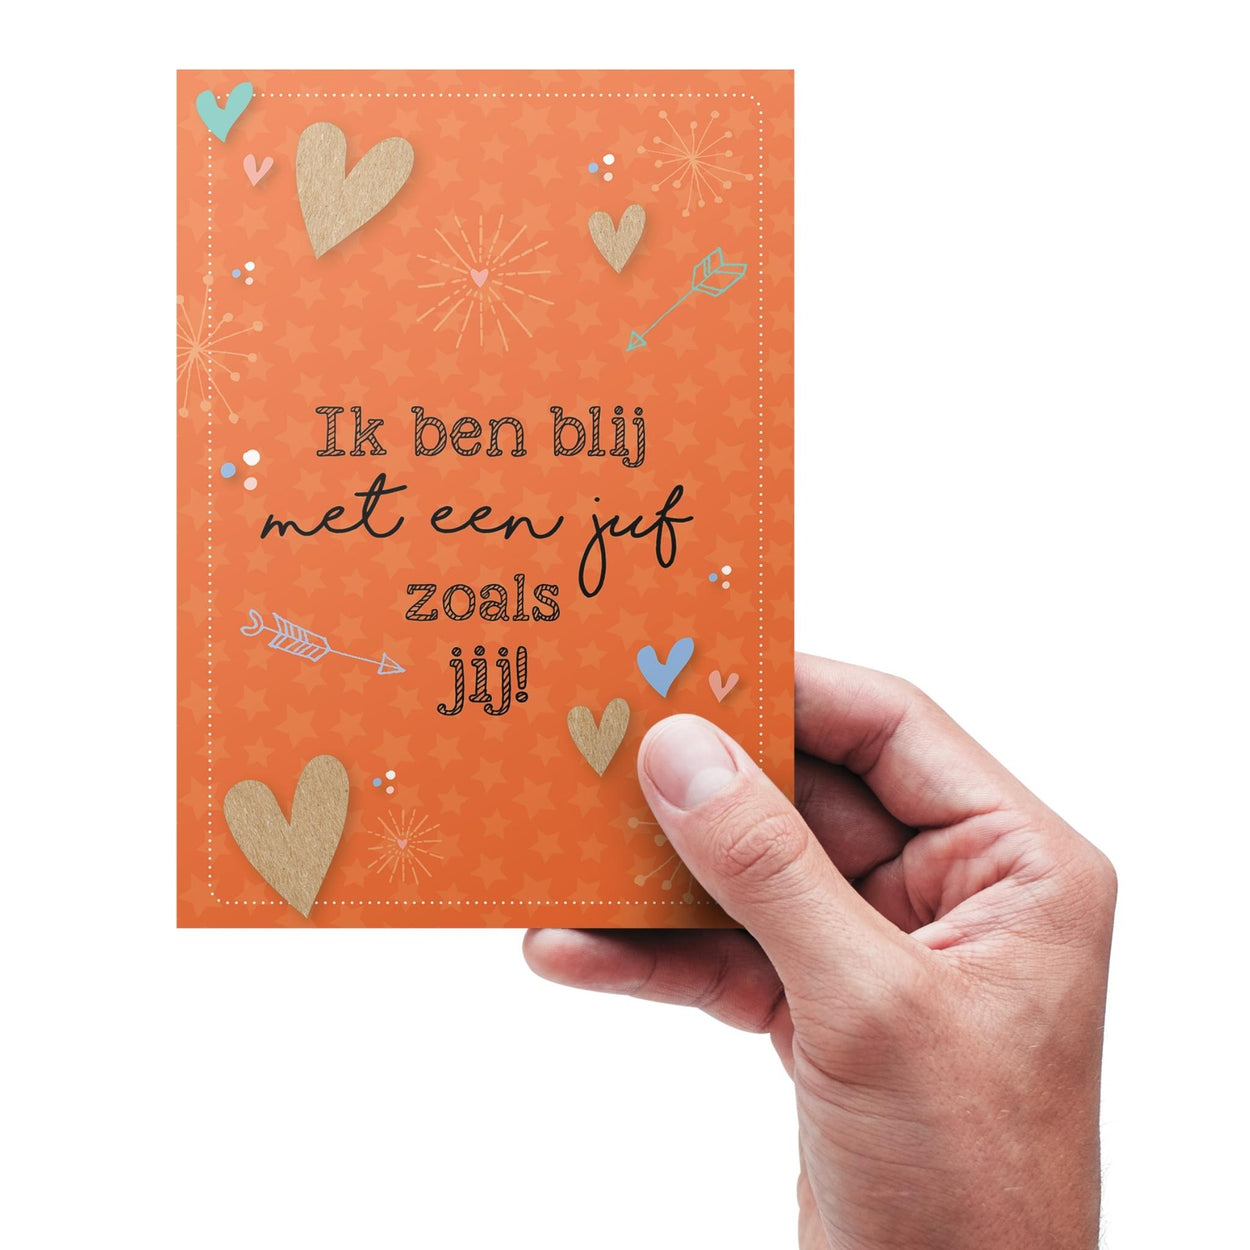 Ik ben blij
met een juf
zoals
jij!